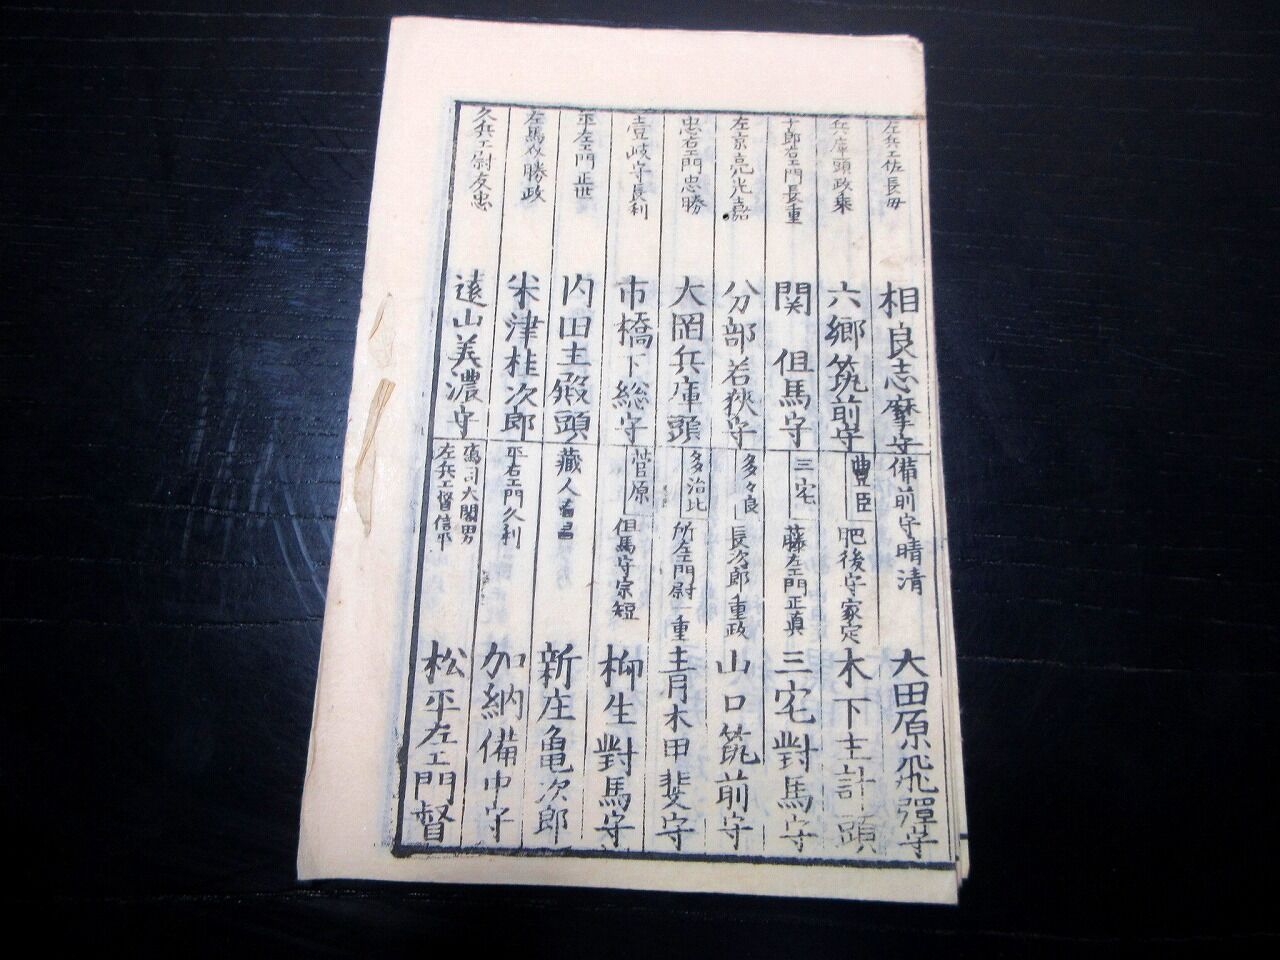 左兵エ佐長毎
相良志摩守
兵庫頭政乗
六郷筑前守
十郎右エ門長重
関 但馬守
左京亮光嘉
分部若狭守
忠右エ門忠勝
大岡兵庫頭
壹岐守長利
市橋下総守
平左エ門正世
内田主殿頭
左馬介勝政
米津桂次郎
久兵エ尉友忠
遠山美濃守
備前守晴清
大田原飛彈守
豊臣
肥後守家定
木下主計頭
三宅
藤左エ門正眞
三宅對馬守
多々良
長次郎重政
山口筑前守
多治比
所左エ門尉一重
青木甲斐守
菅原
但馬守宗短
柳生對馬守
藏人
新庄亀次郎
平右エ門久利
加納備中守
鷹司大閤男
左兵エ督信平
松平左エ門督